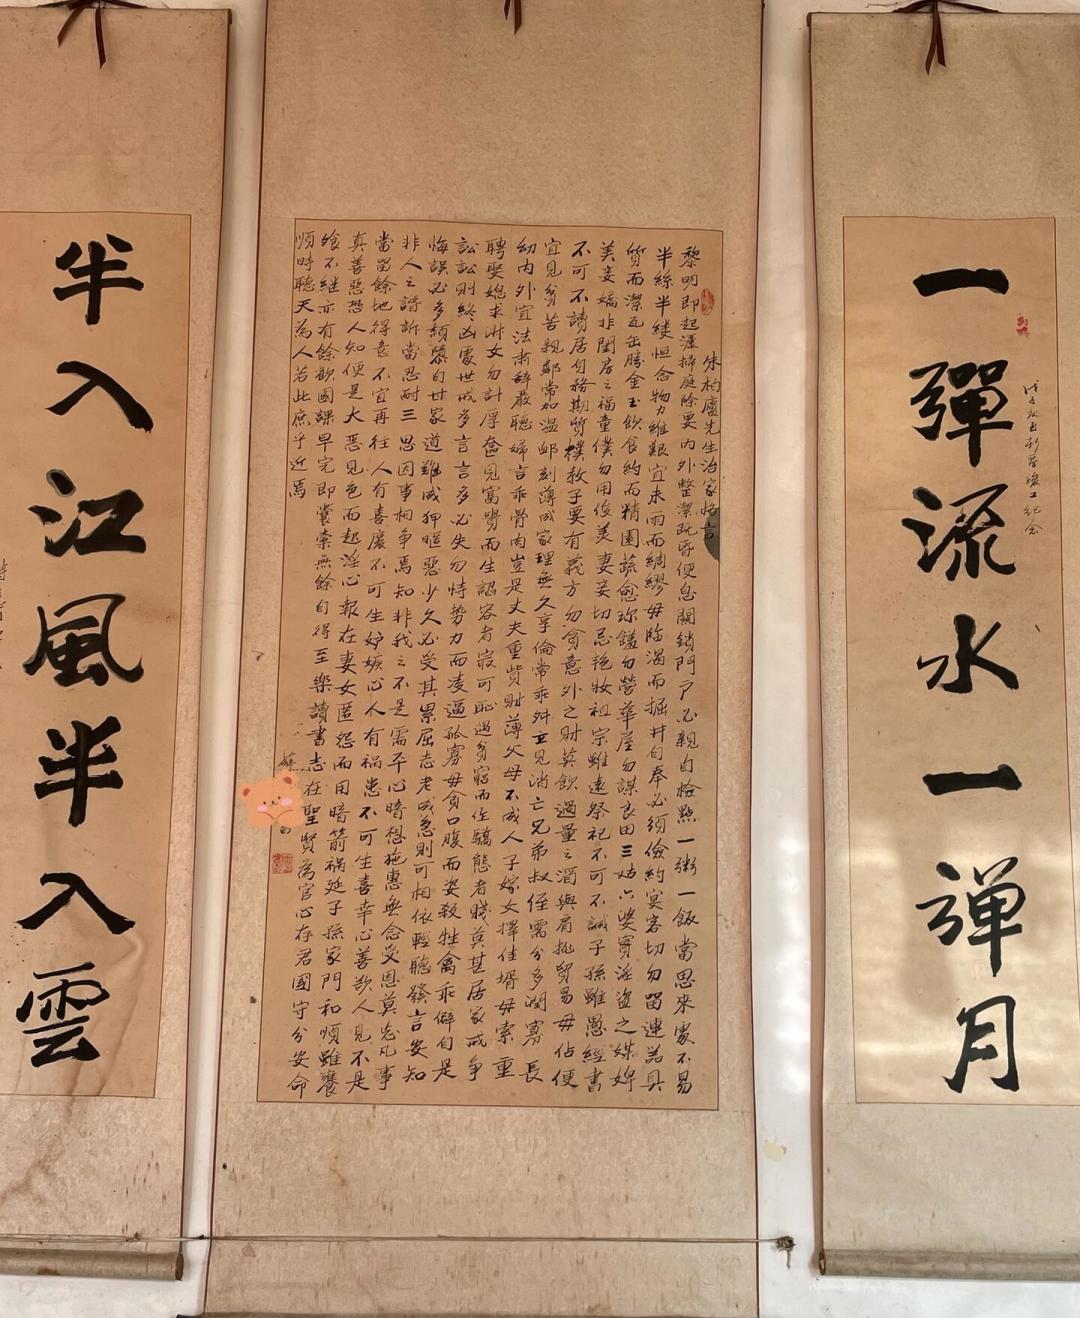 一彈流水一弹月
新居竣工纪念
朱柏廬先生治家格言
黎明即起灑掃庭除要內外整潔既昏便息關鎖門戶必親自檢點一粥一飯當思來處不易
半絲半縷恒念物力維艱宜未雨而綢繆毋臨渴而掘井自奉必須儉約宴客切勿留連器具
質而潔瓦缶勝金玉飲食約而精園蔬愈珍饈勿營華屋勿謀良田三姑六婆實淫盜之媒婢
美妾嬌非閨房之福童僕勿用俊美妻妾切忌艳妝祖宗雖遠祭祀不可不誠子孫雖愚經書
不可不讀居身務期質樸教子要有義方勿貪意外之財莫飲過量之酒與肩挑貿易毋佔便
宜見貧苦親鄰常加溫卹刻薄成家理無久享倫常乖舛立見消亡兄弟叔侄需分多潤寡長
幼內外宜法肅辭嚴聽婦言乖骨肉豈是丈夫重貲財薄父母不成人子嫁女擇佳壻毋索重
聘娶媳求淑女勿計厚奩見富貴而生諂容者最可恥遇貧窮而作驕態者賤莫甚居家戒爭
訟訟則終凶處世戒多言言多必失勿恃勢力而凌逼孤寡毋貪口腹而恣殺牲禽乖僻自是
悔誤必多頹隳自甘家道難成狎暱惡少久必受其累屈志老成急則可相依輕聽發言安知
非人之譖訴當忍耐三思因事相爭焉知非我之不是需平心暗想施惠無念受恩莫忘凡事
當留餘地得意不宜再往人有喜慶不可生妒嫉心人有禍患不可生喜幸心善欲人見不是
真善惡恐人知便是大惡見色而起淫心報在妻女匿怨而用暗箭禍延子孫家門和順雖饔
飧不繼亦有餘歡國課早完即囊橐無餘自得至樂讀書志在聖賢為官心存君國守分安命
順時聽天為人若此庶乎近焉
蘇
半入江風半入雲